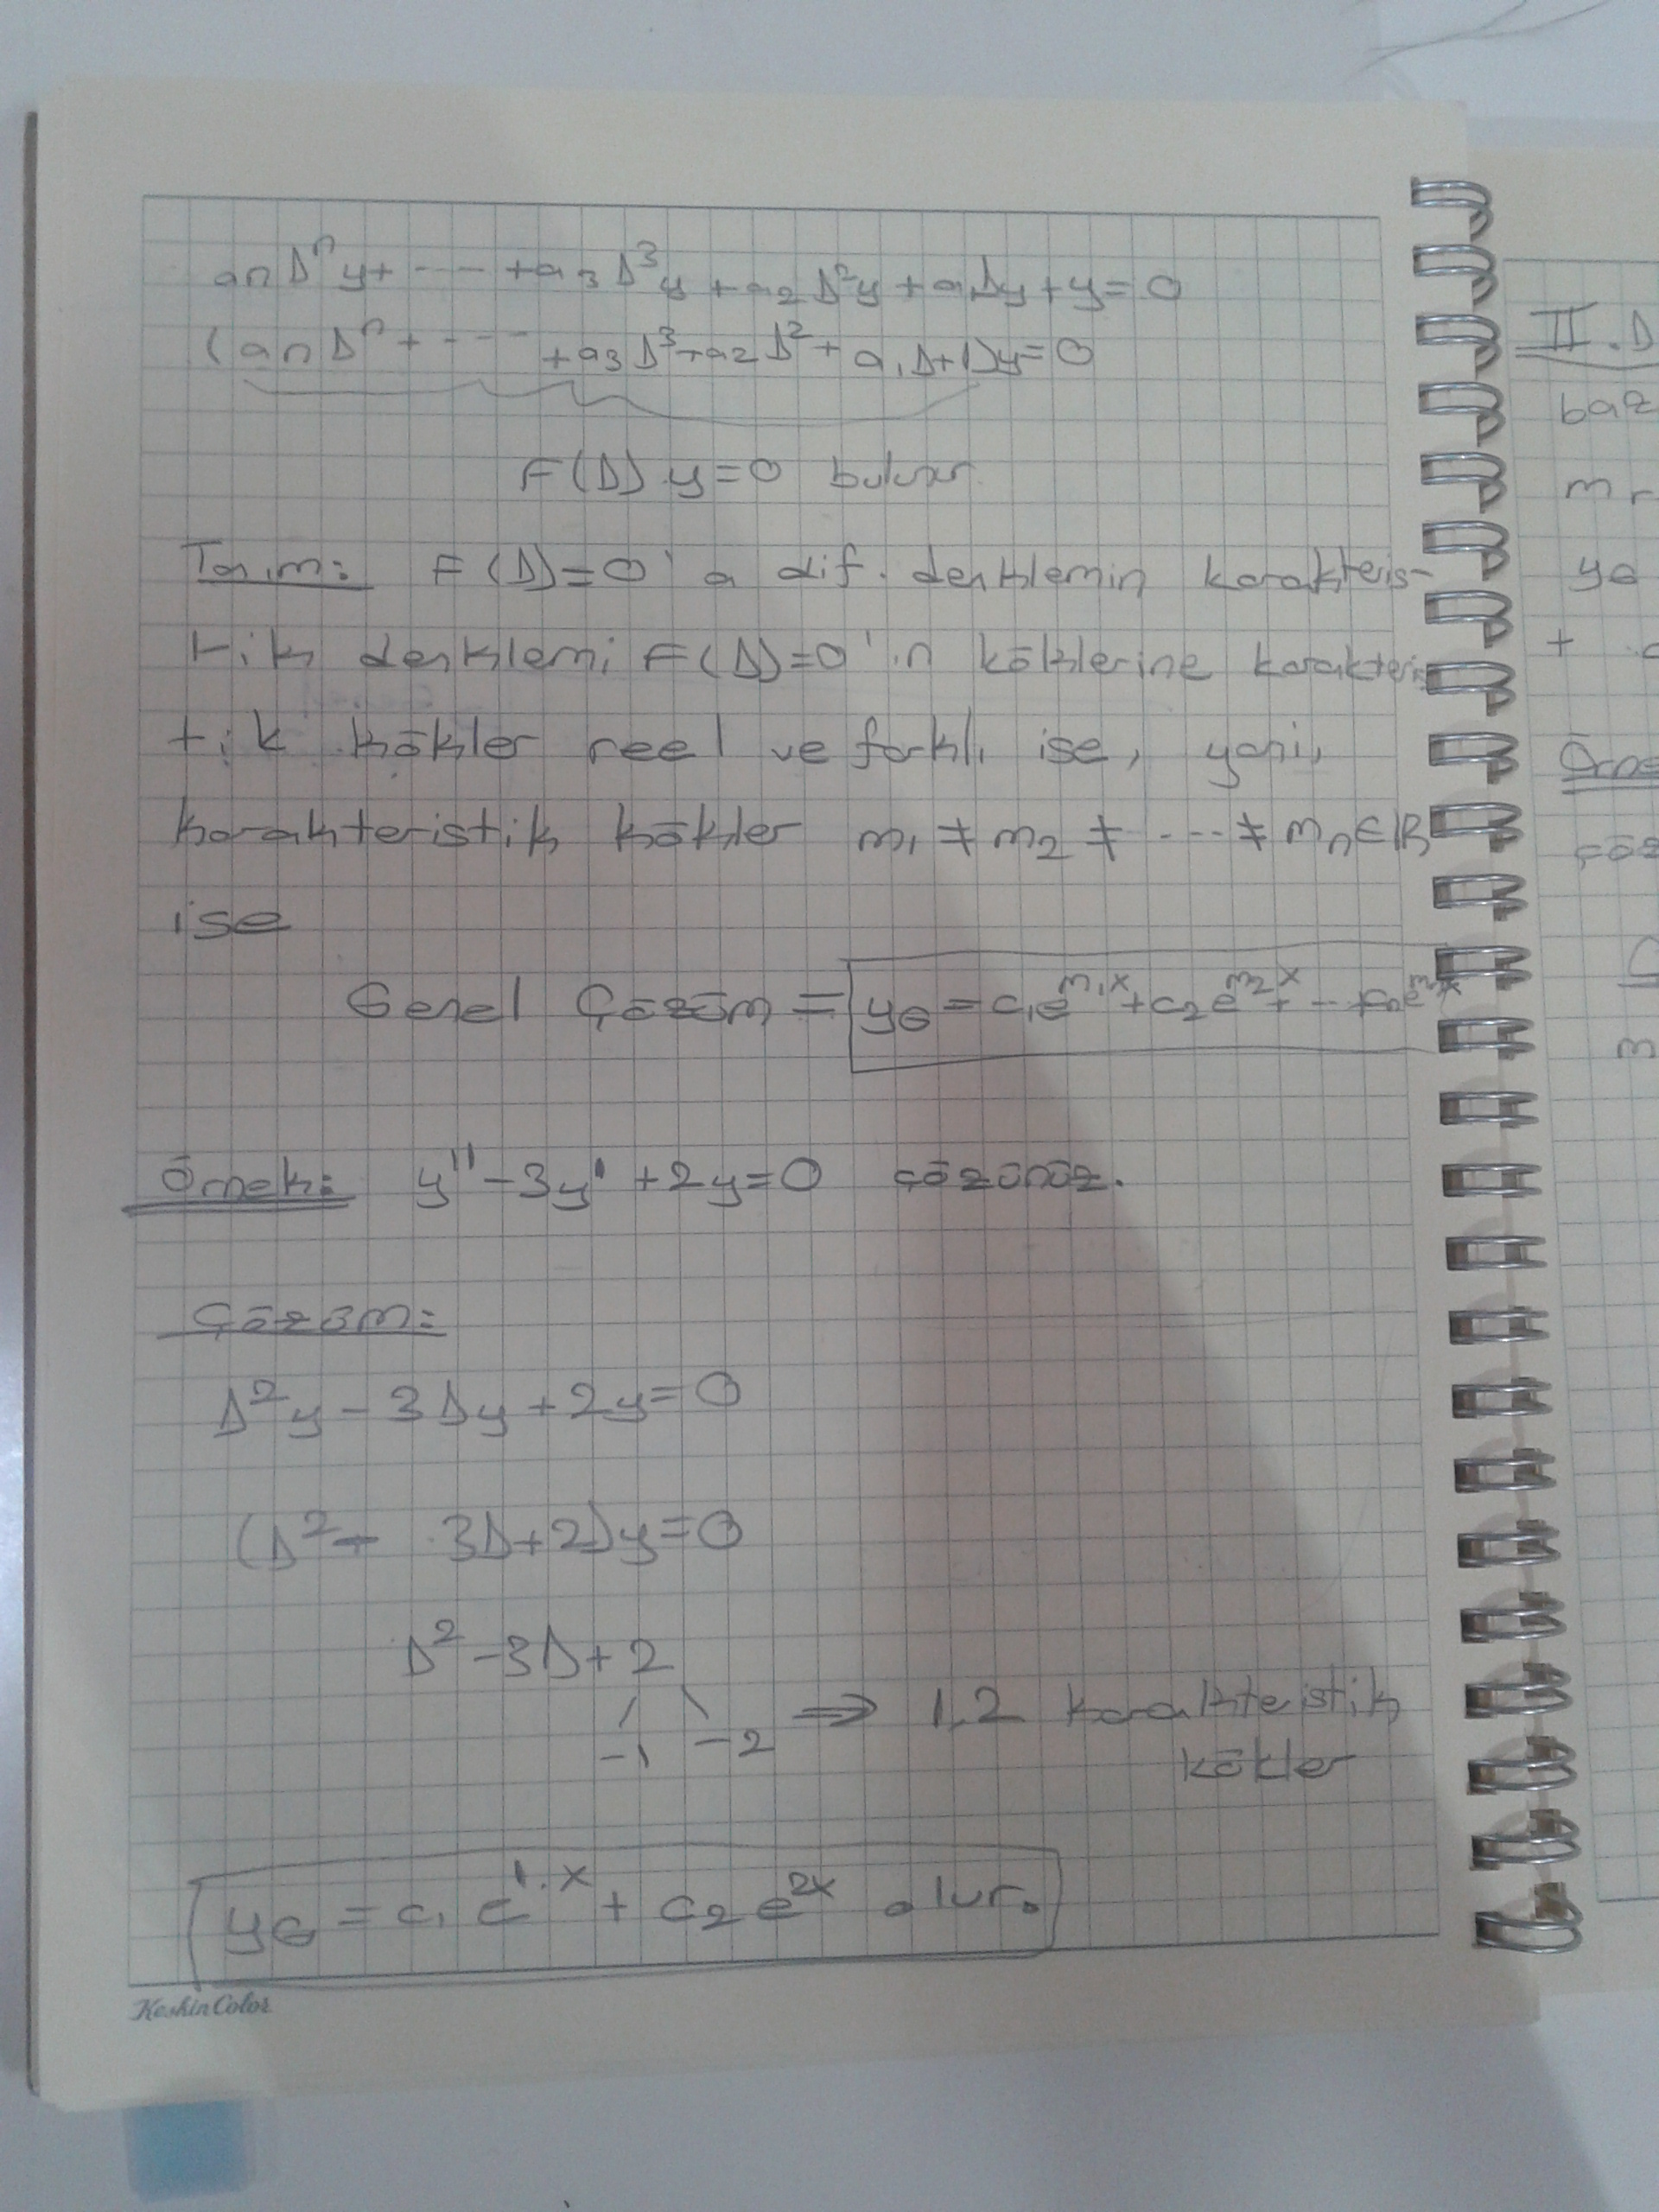 anDⁿy+ ---- +a₃D³y +a₂D²y +a₁Dy +y=0
(anDⁿ + ---- +a₃D³+a₂D²+ a₁D+1)y=0
F(D).y=0 bulunur.
Tanım: F(D)=0'a dif. denklemin karakteris-
tik denklemi F(D)=0'ın köklerine karakteris
tik kökler reel ve farklı ise, yani,
karakteristik kökler m₁ ≠ m₂ ≠ ---- ≠ mₙ∈IR
ise
Genel Çözüm = yG = c₁e^m₁x + c₂e^m₂x + --- +cₙe^mₙx
Örnek: y'' -3y' +2y=0 çözünüz.
Çözüm:
D²y - 3Dy +2y=0
(D² - 3D+2)y=0
D² -3D+2
-1 -2 ⇒ 1,2 karakteristik
kökler
yG = c₁ e^1.x + c₂ e^2x olur.
Keskin Color
II. D
baz
m
yG
+ c
Örne
çöz
3